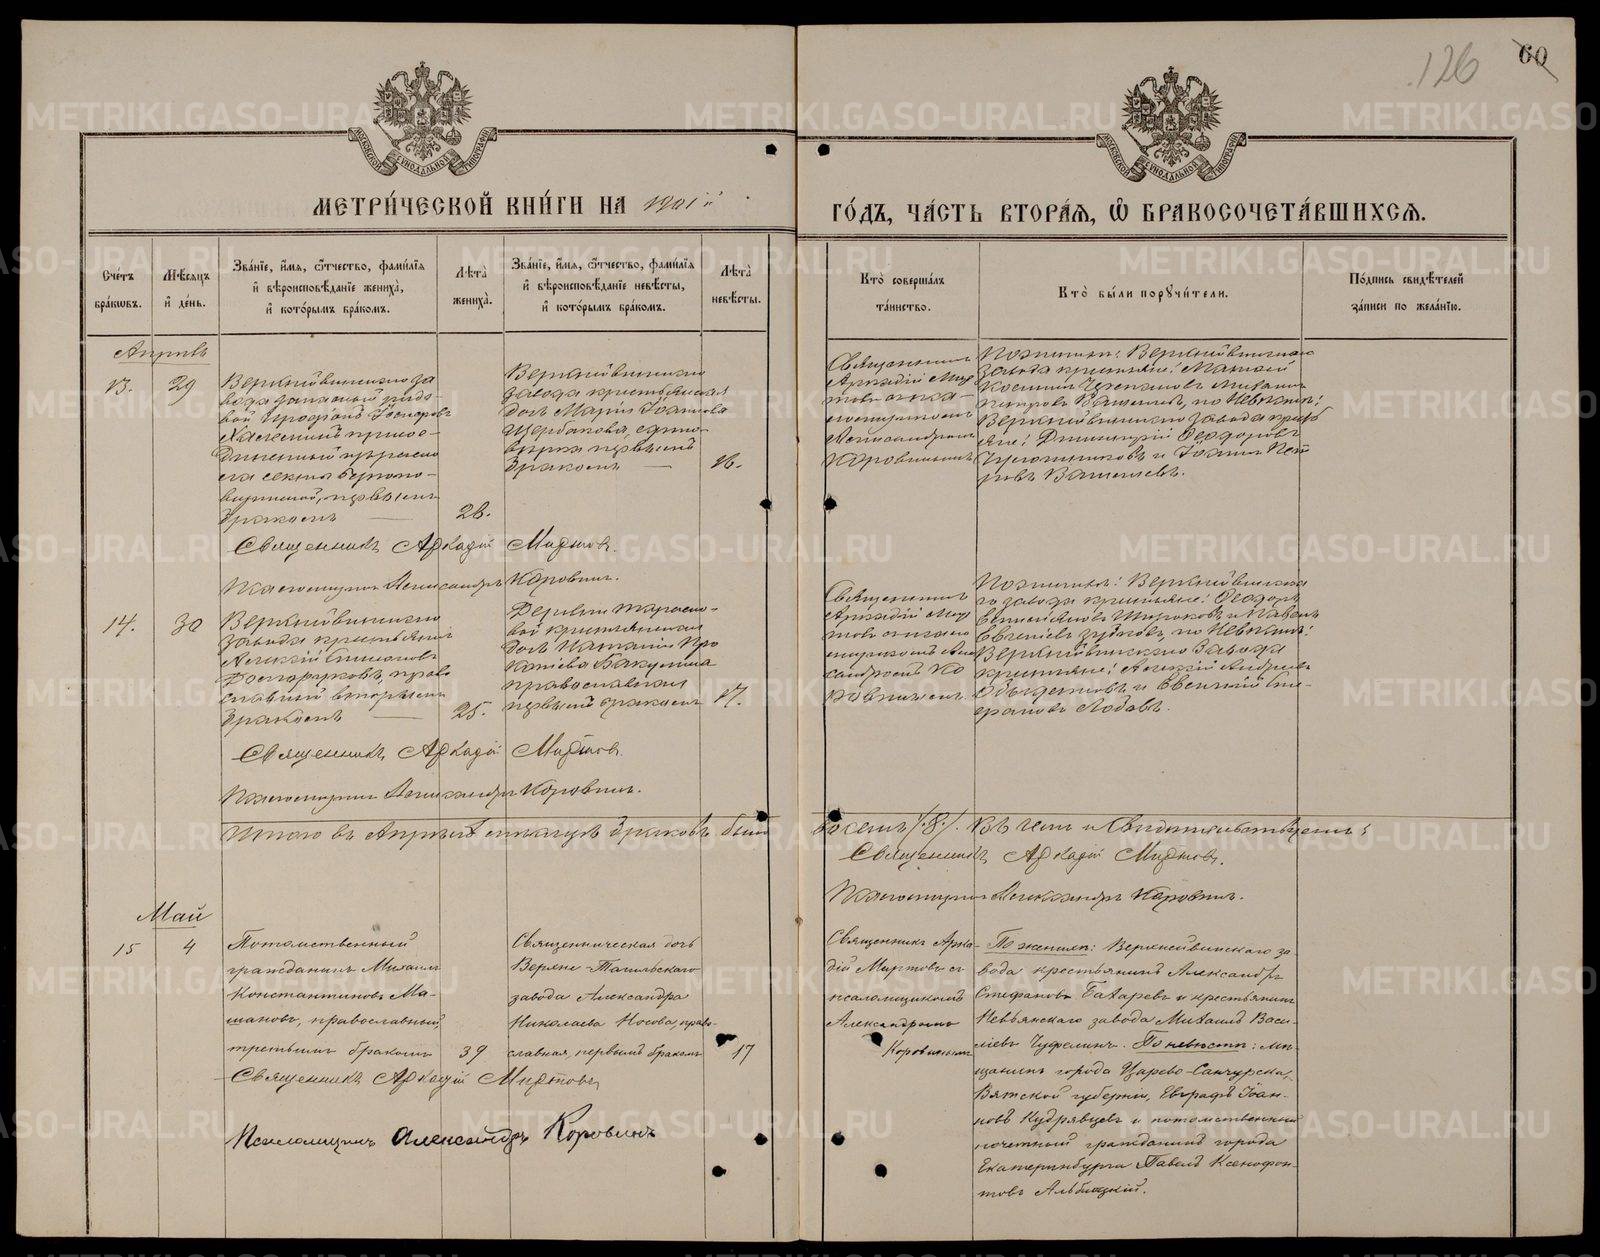 126
60
МЕТРИ́ЧЕСКОЙ КНИ́ГИ НА 1901й
ГО́ДЪ, ЧА́СТЬ ВТОРА́Я, Ѽ БРАКОСОЧЕТА́ВШИХСЯ.
Сче́тъ бра́кѡвъ.
Мѣ́сяцъ и҆ де́нь.
Зва́нїе, и҆́мя, ѻ҆́тчество, фами́лїя и҆ вѣроисповѣ́данїе жениха̀, и҆ кото́рымъ бра́комъ.
Лѣ́та жениха̀.
Зва́нїе, и҆́мя, ѻ҆́тчество, фами́лїя и҆ вѣроисповѣ́данїе невѣ́сты, и҆ кото́рымъ бра́комъ.
Лѣ́та невѣ́сты.
Кто̀ соверша́лъ та́инство.
Кто̀ бы́ли порꙋчи́тели.
По́дпись свидѣ́телей за́писи по жела́нїю.
Апрѣль
13.
29
Верхнейвинскаго за
вода запасный рядо-
вой
присое-
диненный
первымъ
бракомъ
28.
Верхнейвинскаго
завода крестьянская
дочь Марія Іоаннова
Щербакова, едино-
вѣрка первымъ
бракомъ
16.
Священникъ
Аркадій Мир
товъ съ пса-
ломщикомъ
Александромъ
Коровинымъ
По женихѣ: Верхнейвинскаго
завода крестьяне: Матвей
Михаилъ
Петровъ Вашлевъ, по Невѣстѣ:
Верхнейвинскаго завода кресть
яне: Димитрій Ѳеодоровъ
и Іоаннъ Пет
ровъ
Священникъ Аркадій Миртовъ.
Псаломщикъ Александръ Коровинъ.
14.
30
Верхнейвинскаго
завода крестьянинъ
Алексій Стефановъ
право
славный вторымъ
бракомъ
25.
Деревни Тараско-
вой крестьянская
дочь Наталія Про
копіева Бакунина
православная
первымъ бракомъ
17.
Священникъ
Аркадій Мир
товъ съ псало
мщикомъ Алек
сандромъ Ко
ровинымъ.
По женихѣ: Верхнейвинска
го завода крестьяне: Ѳеодоръ
Широковъ и Павелъ
Евгеніевъ Зубковъ, по Невѣстѣ:
Верхнейвинскаго завода
крестьяне: Алексій Андреевъ
и Евгеній Сте-
фановъ Лобовъ.
Священникъ Аркадій Миртовъ.
Псаломщикъ Александръ Коровинъ.
Итого въ Апрѣлѣ мѣсяцѣ браковъ было
восемь /8/. Въ чемъ и свидѣтельствуемъ:
Священникъ Аркадій Миртовъ.
Псаломщикъ Александръ Коровинъ.
Май
15
4
Потомственный
гражданинъ Михаилъ
Константиновъ Ма-
шановъ, православный,
третьимъ бракомъ
39
Священническая дочь
Верхне-Тагильскаго
завода Александра
Николаева Носова, право-
славная, первымъ бракомъ
17
Священникъ Арка-
дій Миртовъ съ
псаломщикомъ
Александромъ
Коровинымъ
По женихѣ: Верхнейвинскаго за
вода крестьянинъ Александръ
Стефановъ Бахаревъ и крестьянинъ
Невьянскаго завода Михаилъ Васи-
ліевъ По невѣстѣ: мѣ-
щанинъ города Царево-Санчурска,
Вятской губерніи, Евграфъ Іоан-
новъ Кудрявцевъ и потомственный
почетный гражданинъ города
Екатеринбурга Павелъ Ксенофон-
товъ Альбицкій.
Священникъ Аркадій Миртовъ
Псаломщикъ Александръ Коровинъ
METRIKI.GASO-URAL.RU